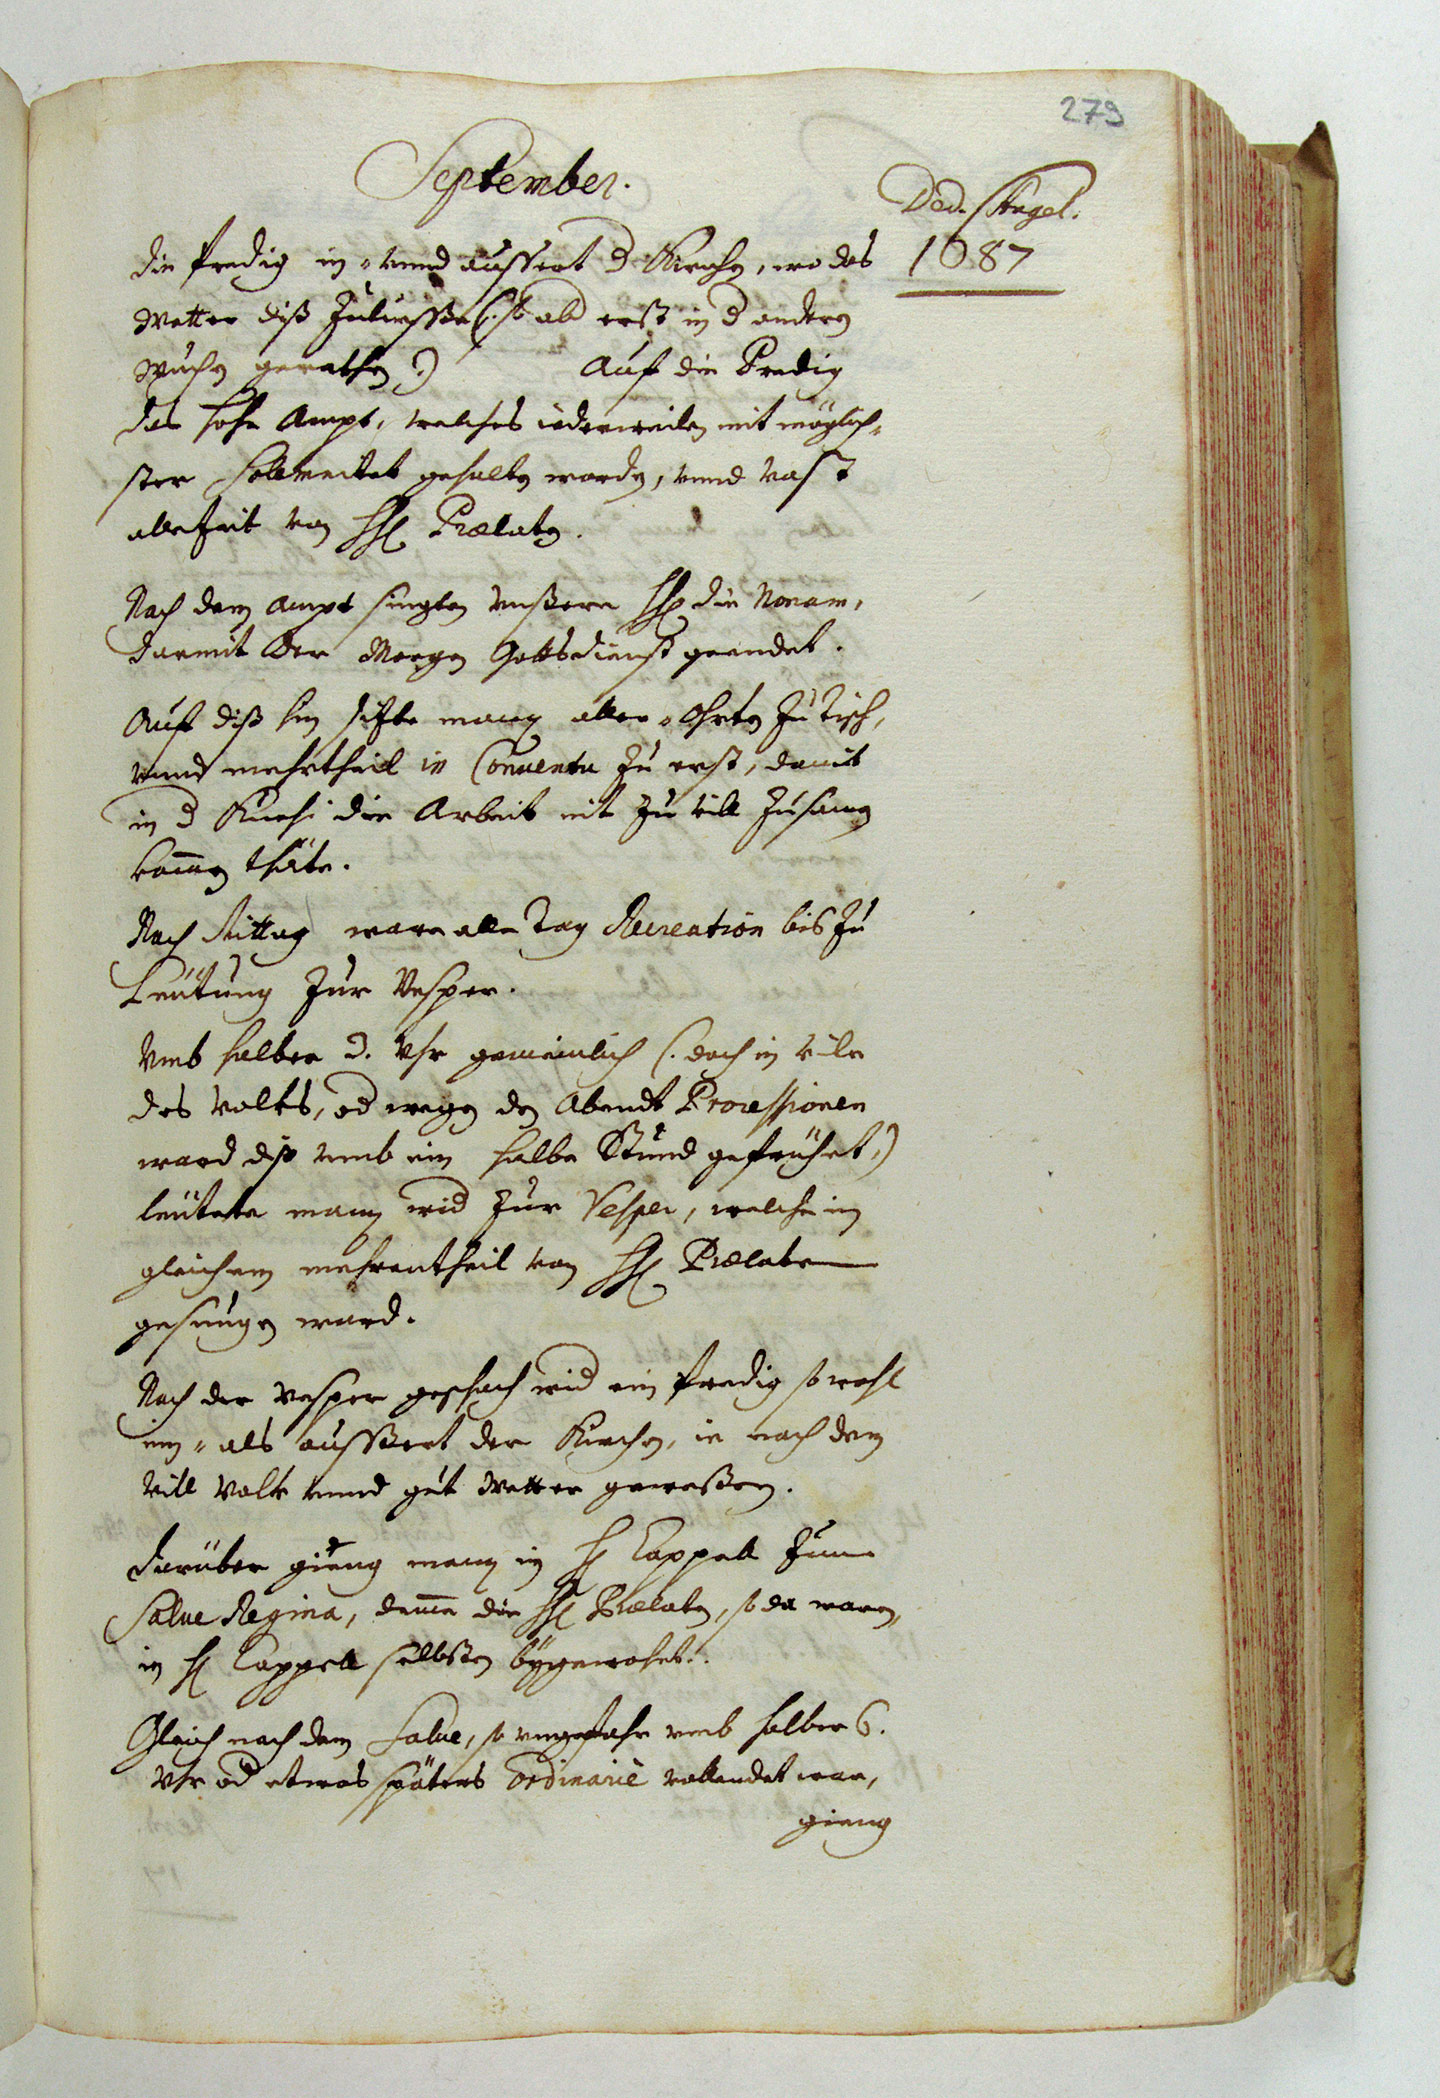 279
September.
Ded. Angel.
1687
die Predig in- vnnd aussert d Kirchen, wo das
Wetter diß Zuliesse (: so ab erst in d anderen
Wuchen gerathen :) Auf die Predig
das hohe Ampt, welches iederweilen mit möglich-
ster Solemnitet gehalten worden, vnnd vast
allezeit von HH. Prælaten.
Nach dem Ampt singten vnßere HH. die Nonam,
darmit der Morgen Gottsdienst geendet.
Auf diß hin sitzte mann aller-Ohrten zu Tisch,
vnnd mehrtheil in Conuentu zu erst, damit
in d Kuchi die Arbeit nit zu vill zusamen
kommen thäte.
Nach Mittag ware alle Tag Recreation bis zu
Leütung zur Vesper.
Vmb halber 3. Vhr gemeinlich (: doch in vile
des Volks, od wegen den Abendt Processionen
ward diß vmb ein halbe Stund gefrühet :)
leütete mann wid zur Vesper, welche in
gleichem mehrentheil von HH. Prælaten
gesungen ward.
Nach der Vesper geschach wid ein Predig so wohl
inn- als aussert der Kirchen, ie nach dem
vill Volk vnnd gut Wetter gewessen.
Darüber gieng mann in H. Cappell zum
Salue Regina, deme die HH. Prælaten, so da waren,
in H. Cappell selbsten bÿgewohet.
Gleich nach dem Salue, so vngefahr vmb halber 6.
Vhr od etwas späters ordinariè vollendet war,
gieng